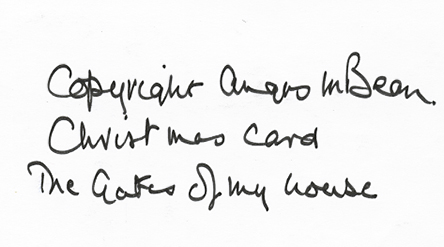 Copyright Angus McBean.
Christmas card
The Gates of my house